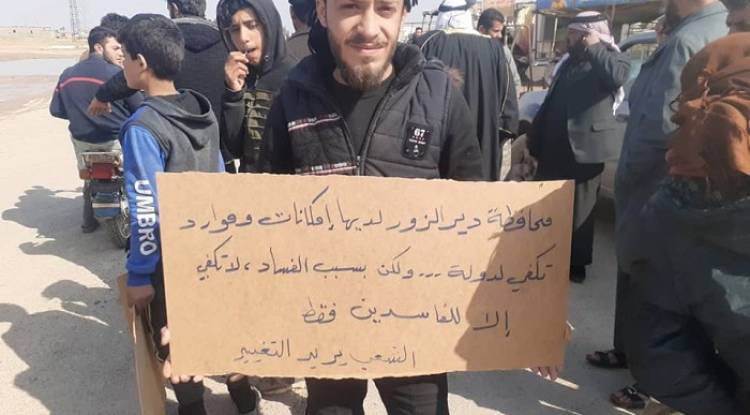 محافظة دير الزور لديها إمكانات وموارد
تكفي لدولة ... ولكن بسبب الفساد ، لا تكفي
إلا للفاسدين فقط
الشعب يريد التغيير
UMBRO
67